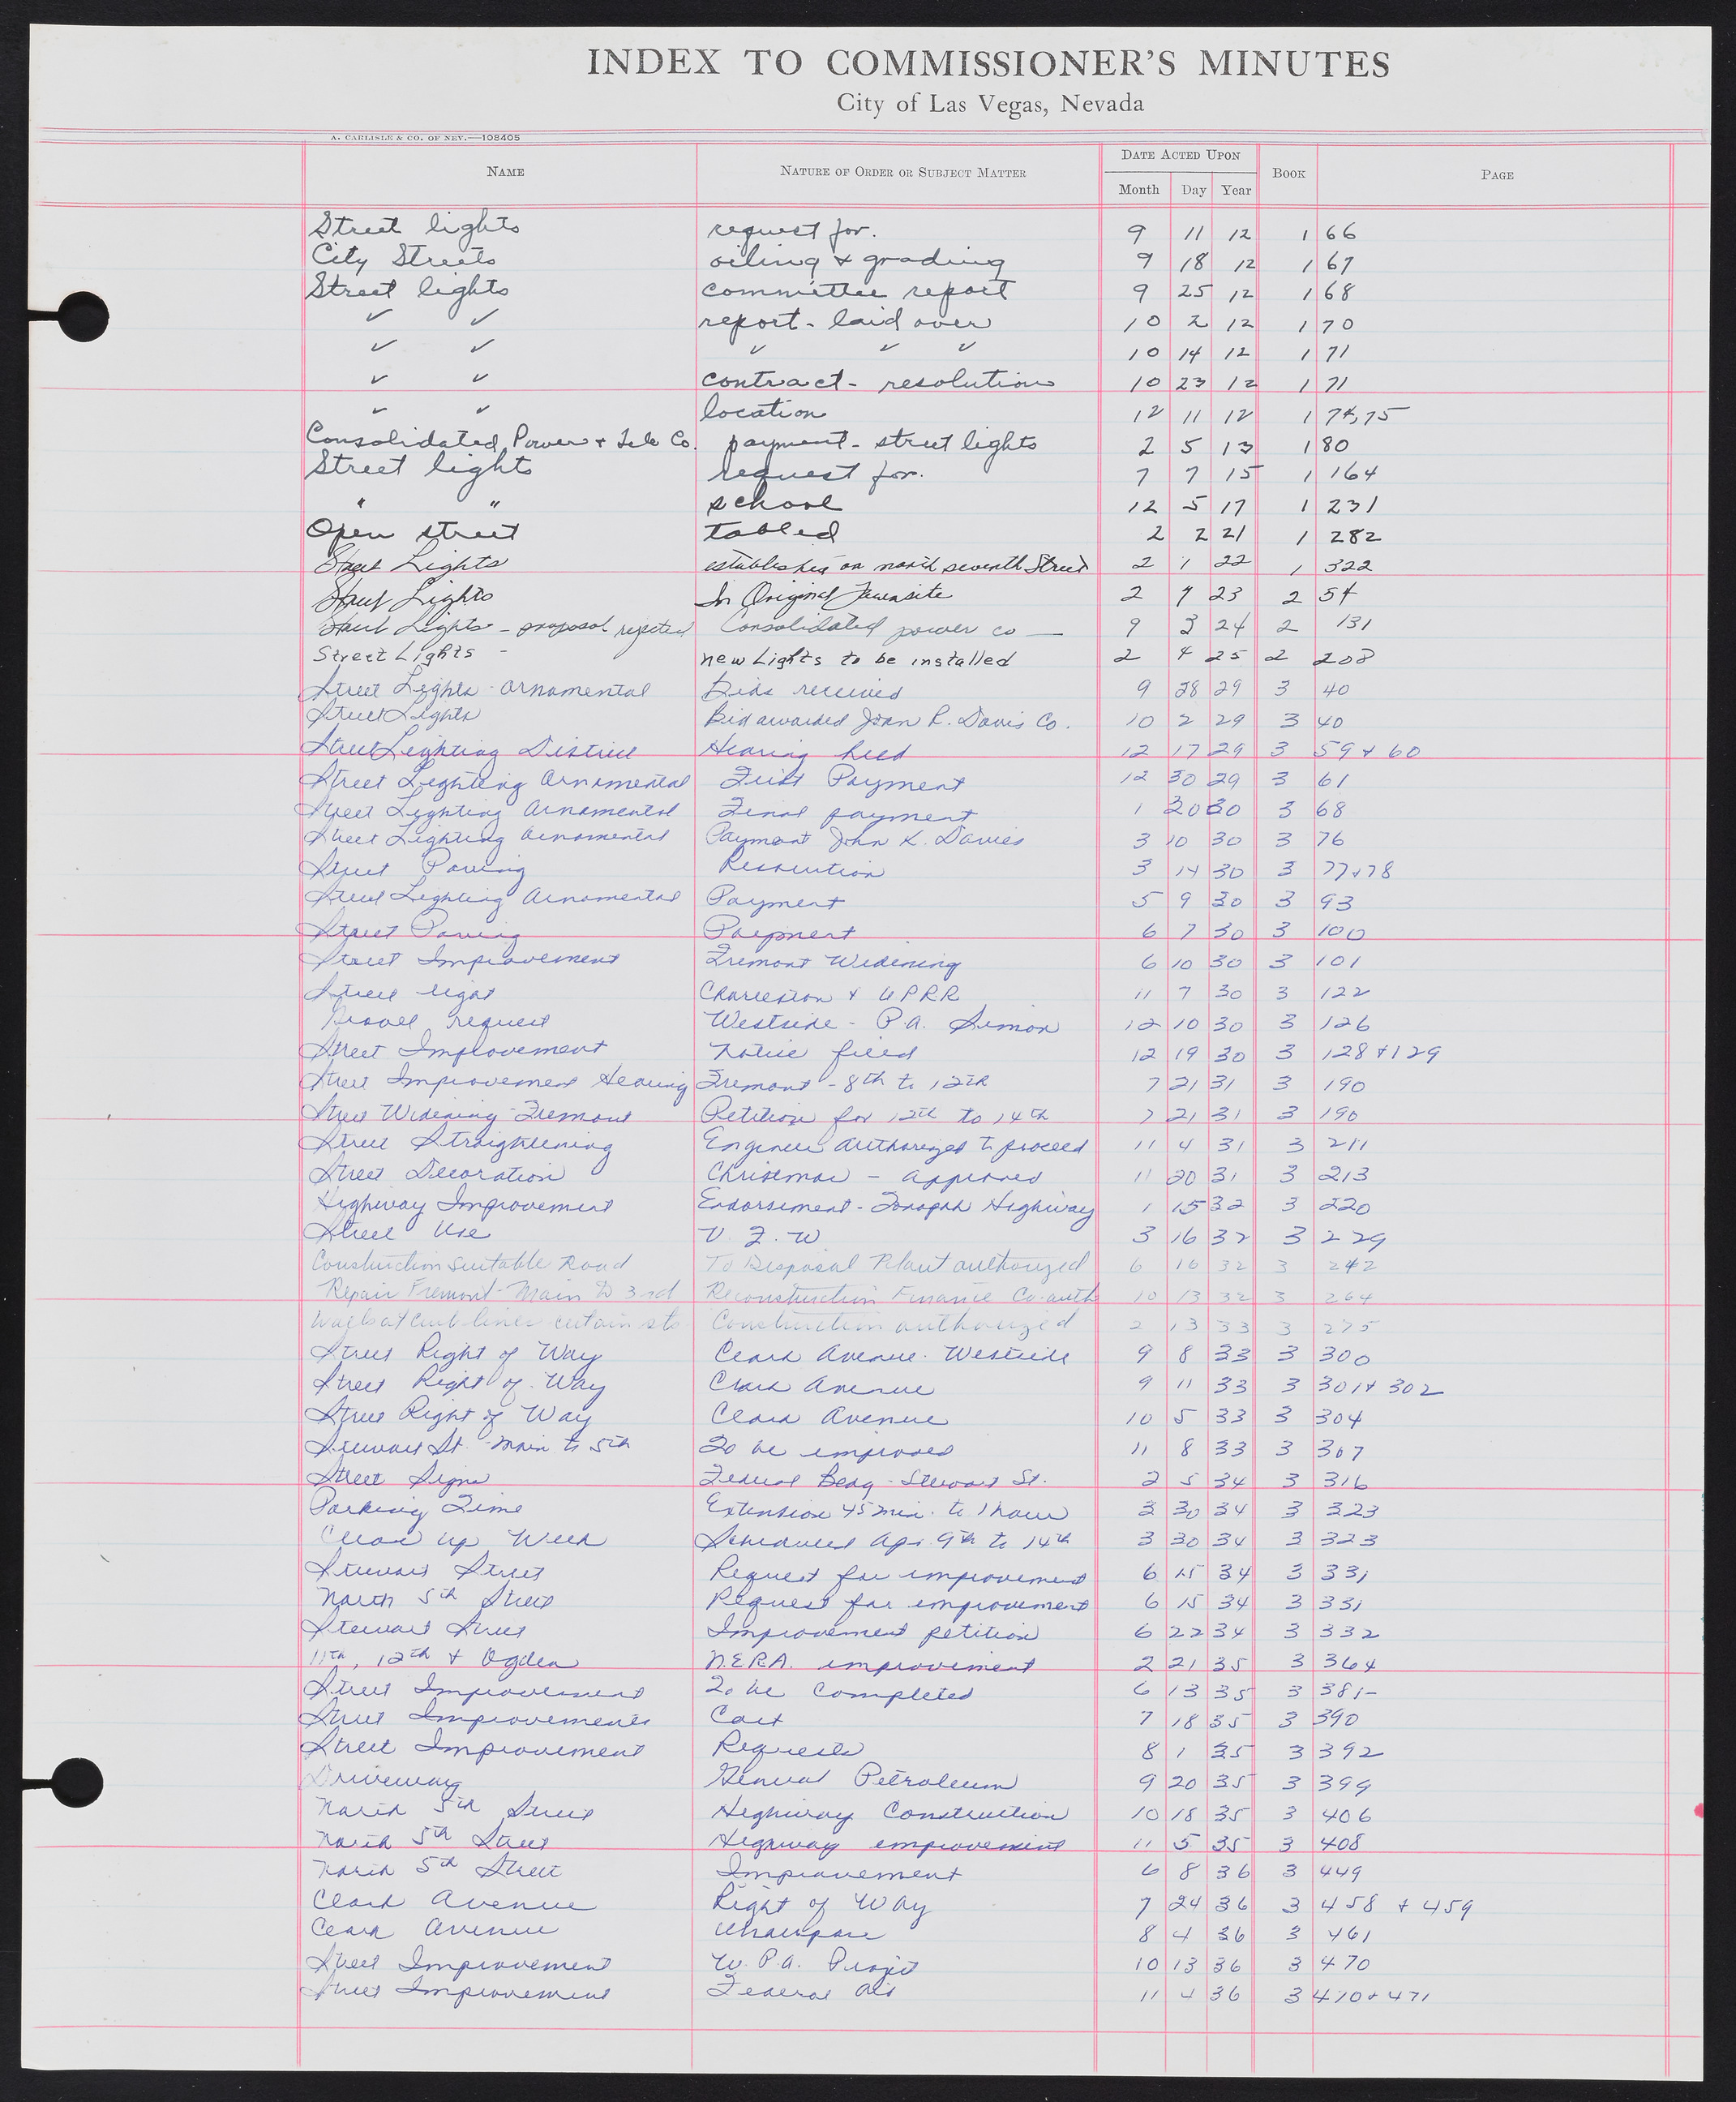 INDEX TO COMMISSIONER'S MINUTES
City of Las Vegas, Nevada
A. CARLISLE & CO. OF NEV.—108405
NAME NATURE OF ORDER OR SUBJECT MATTER DATE ACTED UPON BOOK PAGE
Month Day Year
Street lights request for. 9 11 12 1 66
City Streets oiling & grading 9 18 12 1 67
Street lights committee report 9 25 12 1 68
✓ ✓ report - laid over 10 2 12 1 70
✓ ✓ ✓ ✓ ✓ 10 14 12 1 71
✓ ✓ contract - resolution 10 23 12 1 71
✓ ✓ location 12 11 12 1 74,75
Consolidated Power & Tele Co. payment - street lights 2 5 13 1 80
Street lights request for. 7 7 15 1 164
" " school 12 5 17 1 231
Open street tabled 2 2 21 1 282
Street Lights established on north seventh Street 2 1 22 1 322
Street Lights In Original Townsite 2 7 23 2 54
Street Lights - proposal rejected Consolidated power co — 9 3 24 2 131
Street Lights - new Lights to be installed 2 4 25 2 208
Street Lights - Ornamental Bids received 9 28 29 3 40
Street Lights Bid awarded John R. Davis Co. 10 2 29 3 40
Street Lighting District Hearing held 12 17 29 3 59 & 60
Street Lighting Ornamental First Payment 12 30 29 3 61
Street Lighting Ornamental Final payment 1 30 30 3 68
Street Lighting Ornamental Payment John K. Davies 3 10 30 3 76
Street Paving Resolution 3 14 30 3 77 & 78
Street Lighting Ornamental Payment 5 9 30 3 93
Street Paving Payment 6 7 30 3 100
Street Improvement Fremont Widening 6 10 30 3 101
Street light Charleston & UPRR 11 7 30 3 122
Gravel request Westside - P.A. Simon 12 10 30 3 126
Street Improvement Notice filed 12 19 30 3 128 & 129
Street Improvement Hearing Fremont - 8th to 12th 7 21 31 3 190
Street Widening - Fremont Petition for 12th to 14th 7 21 31 3 190
Street Straightening Engineer authorized to proceed 11 4 31 3 211
Street Decoration Christmas - approved 11 20 31 3 213
Highway Improvement Endorsement - Tonopah Highway 1 15 32 3 220
Street Use V. F. W 3 16 32 3 229
Construction suitable Road To Disposal Plant authorized 6 16 32 3 242
Repair Fremont - Main to 3rd Reconstruction Finance Co. auth 10 13 32 3 264
at curb lines certain sts Construction authorized 2 13 33 3 275
Street Right of Way Clark Avenue. Westside 9 8 33 3 300
Street Right of Way Clark Avenue 9 11 33 3 301 & 302
Street Right of Way Clark Avenue 10 5 33 3 304
Stewart St. Main to 5th To be improved 11 8 33 3 307
Street Signs Federal Bldg - Stewart St. 2 5 34 3 316
Parking Time Extension 45 min. to 1 hour 3 30 34 3 323
Clean up Week Scheduled Apr. 9th to 14th 3 30 34 3 323
Stewart Street Request for improvement 6 15 34 3 331
North 5th Street Request for improvement 6 15 34 3 331
Stewart Street Improvement petition 6 22 34 3 332
11th, 12th & Ogden N.E.R.A. improvement 2 21 35 3 364
Street Improvement To be completed 6 13 35 3 381-
Street Improvements Cost 7 18 35 3 390
Street Improvement Requests 8 1 35 3 392
Driveway General Petroleum 9 20 35 3 399
North 5th Street Highway Construction 10 18 35 3 406
North 5th Street Highway improvement 11 5 35 3 408
North 5th Street Improvement 6 8 36 3 449
Clark Avenue Right of Way 7 24 36 3 458 & 459
Clark Avenue Underpass 8 4 36 3 461
Street Improvement W.P.A. Project 10 13 36 3 470
Street Improvement Federal Aid 11 4 36 3 470 & 471